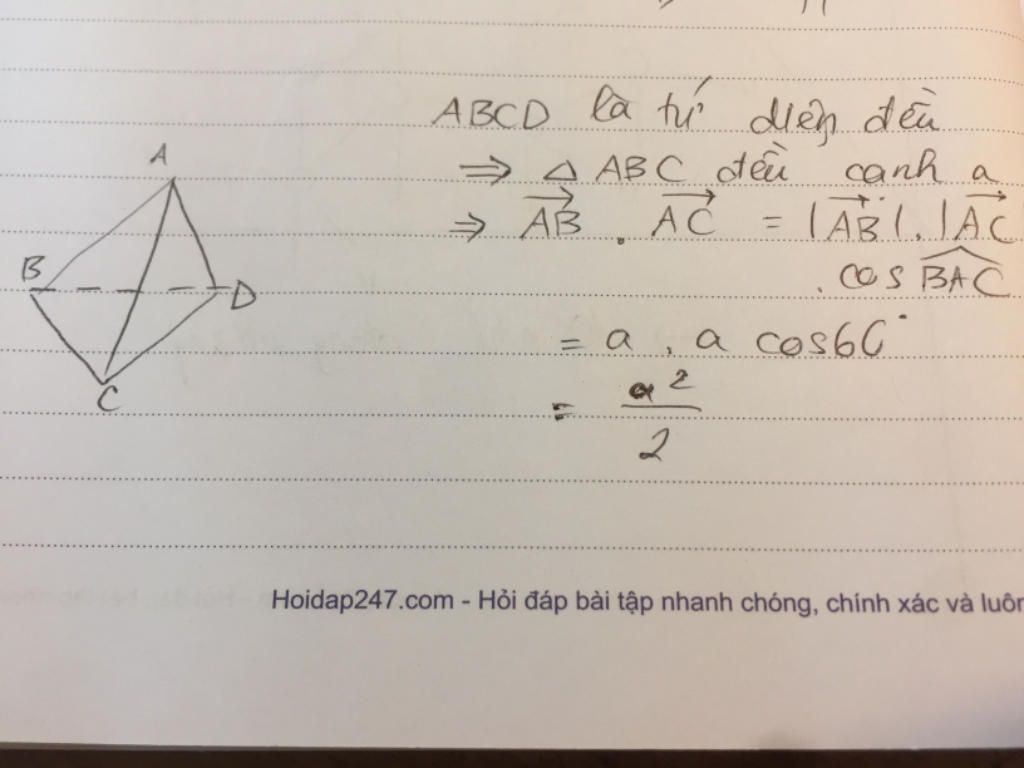 ABCD là tứ diện đều
⇒ △ ABC đều cạnh a
⇒ \overrightarrow{AB} . \overrightarrow{AC} = |\overrightarrow{AB}| . |\overrightarrow{AC}
. cos \widehat{BAC}
= a . a cos60°
= \frac{a^2}{2}
A
B
D
C
Hoidap247.com - Hỏi đáp bài tập nhanh chóng, chính xác và luôn